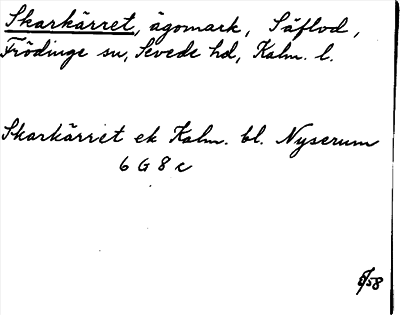 Skarkärret, ägomark, Säflod,
Frödinge sn, Sevede hd, Kalm. l.
Skarkärret ek Kalm. bl. Nyserum
6 G 8 c
58